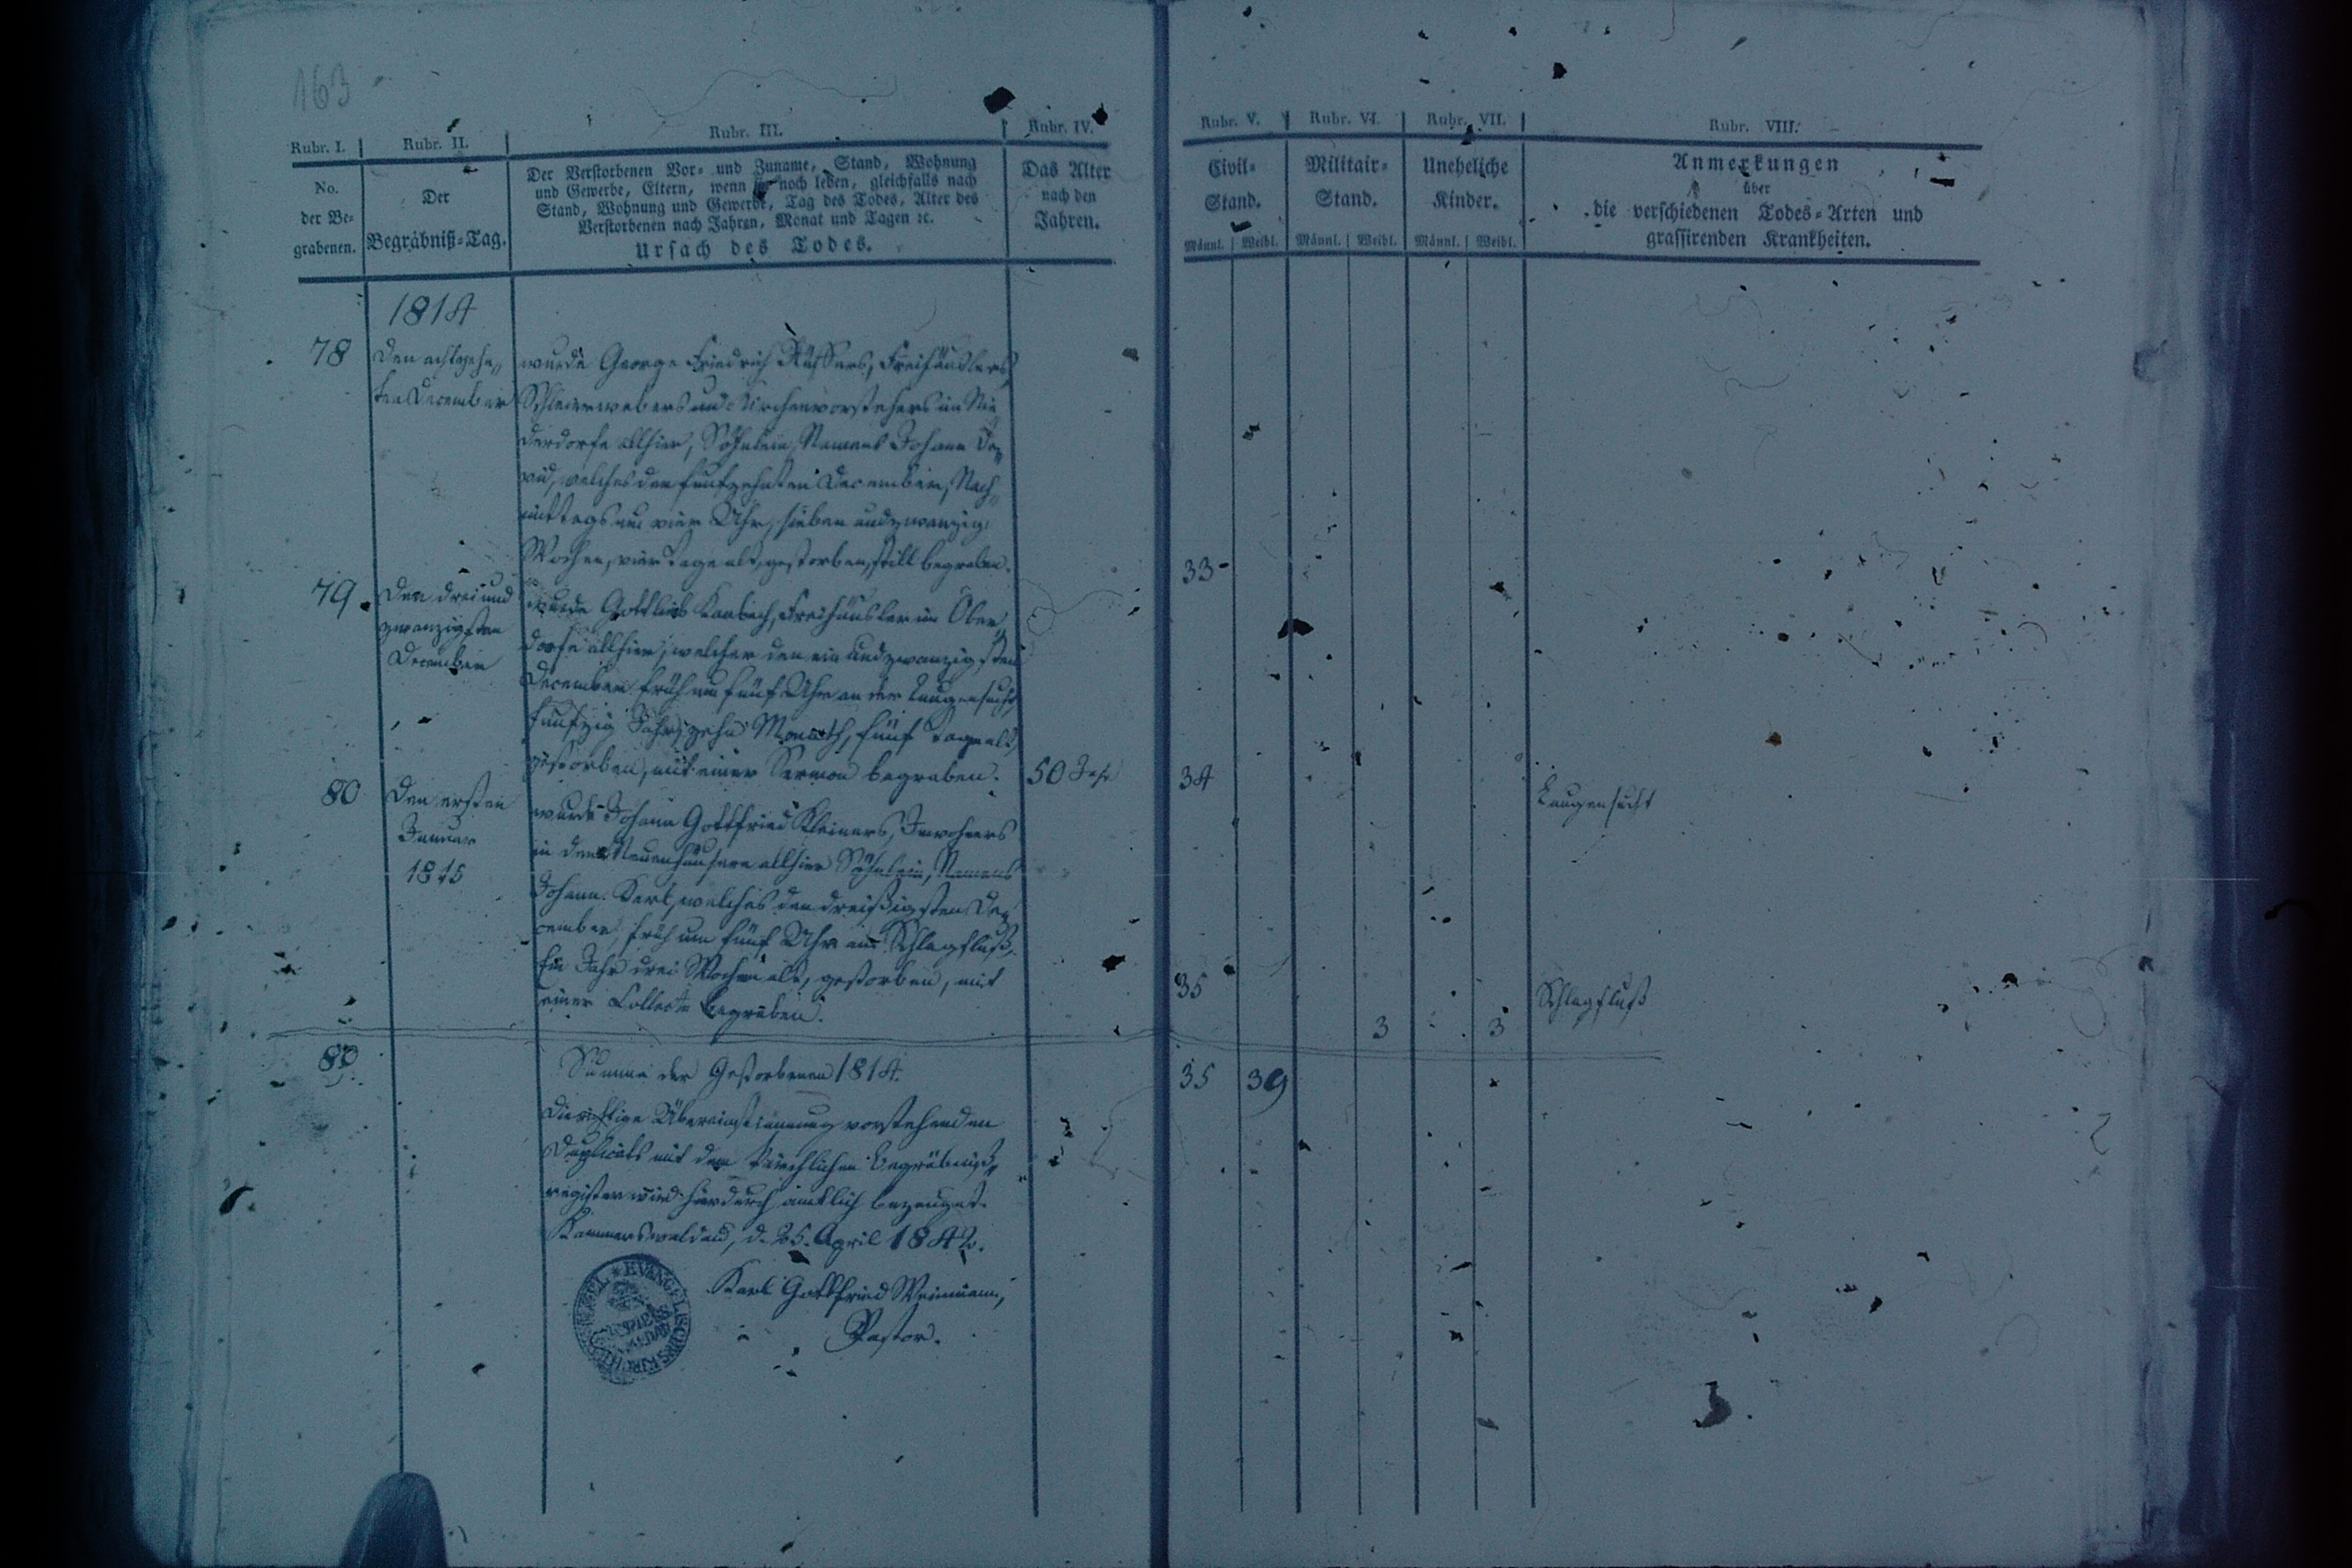 163
Rubr. I. Rubr. II. Rubr. III. Rubr. IV. Rubr. V. Rubr. VI. Rubr. VII. Rubr. VIII.
No.
der Be-
grabenen.
Der
Begräbniß-Tag.
Der Verstorbenen Vor- und Zuname, Stand, Wohnung
und Gewerbe, Eltern, wenn sie noch leben, gleichfalls nach
Stand, Wohnung und Gewerbe, Tag des Todes, Alter des
Verstorbenen nach Jahren, Monat und Tagen ꝛc.
Ursach des Todes.
Das Alter
nach den
Jahren.
Civil-
Stand.
Männl. Weibl.
Militair-
Stand.
Männl. Weibl.
Uneheliche
Kinder.
Männl. Weibl.
Anmerkungen
über
die verschiedenen Todes-Arten und
grassirenden Krankheiten.
1814
78
Den achtzehn
ten December
wurde George Friedrich Freihäuslers,
Schleierwebers und Kirchenvorstehers im Nie
derdorfe allhier, Söhnlein, Namens Johann Da
vid, welches den funfzehnten December, Nach
mittags um vier Uhr, sieben und zwanzig
Wochen, vier Tage alt, gestorben, still begraben.
33
79.
Den drei und
zwanzigsten
December
wurde Gottlieb Freihäusler im Ober
dorfe allhier, welcher den ein und zwanzigsten
December früh um fünf Uhr an der Lungensucht,
funfzig Jahr, zehn Monath, fünf Tage alt,
gestorben, mit einer Sermon begraben.
50 Jahr
34
Lungensucht
80
Den ersten
Januar
1815
wurde Johann Gottfried Kleiners, Inwohners
in den Neuenhäusern allhier Söhnlein, Namens
Johann Karl, welches den dreißigsten De
cember, früh um fünf Uhr am Schlagfluß,
Ein Jahr drei Wochen alt, gestorben, mit
einer Collecte begraben.
35
Schlagfluß
3 3
80
Summa der Gestorbenen 1814.
35 39
Die richtige Übereinstimmung vorstehenden
Duplicats mit dem kirchlichen Begräbniß
register wird hierdurch amtlich bezeuget.
Kammerswaldau, d. 25. April 1842.
Karl Gottfried
Pastor.